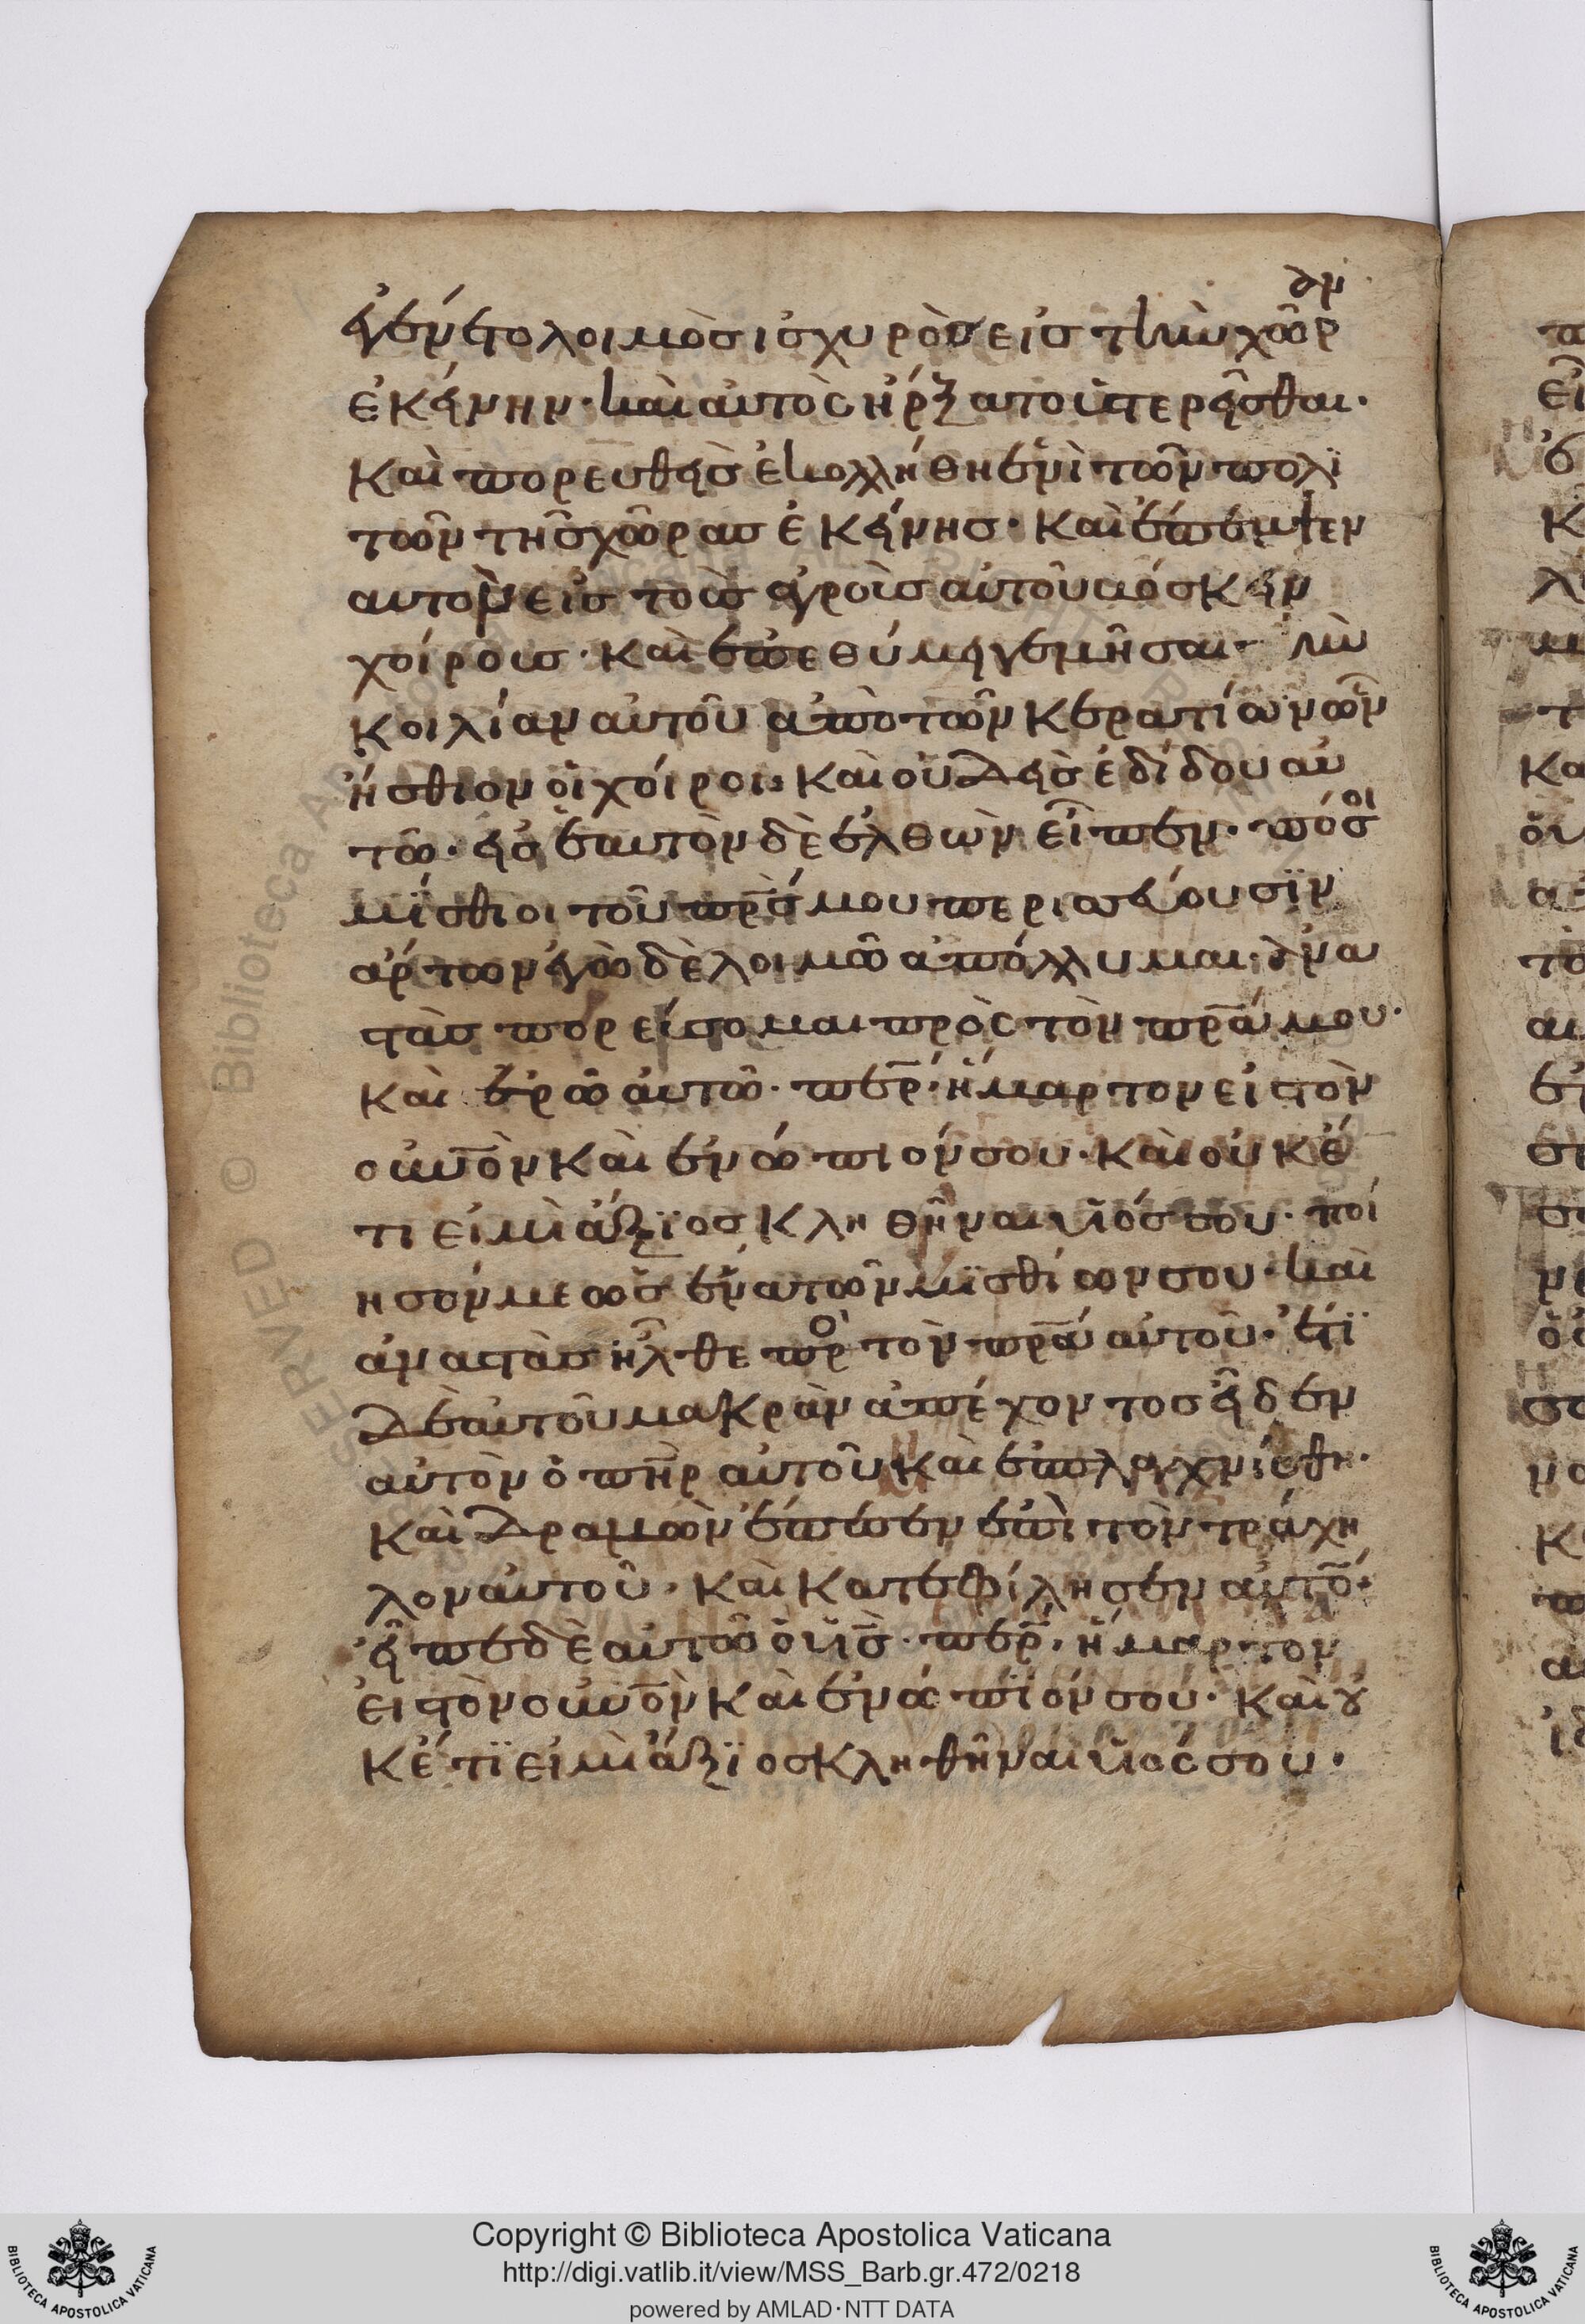 ἐγένετο λοιμὸσ ἰσχυρὸσ εἰσ τὴν χῶραν
ἐκείνην· καὶ αὐτὸς ἤρξατο ὑστερεῖσθαι·
καὶ πορευθεὶσ ἐκολλήθη ἑνὶ τῶν πολϊ
τῶν τῆσ χώρασ ἐκείνησ· καὶ ἔπεμψεν
αυτὸν εἰσ τοὺσ ἀγροὺσ αὐτοῦ βόσκειν
χοίρουσ· καὶ ἐπεθύμει γεμῆσαι τὴν
κοιλίαν αὐτοῦ ἀπὸ τῶν κερατίων ὧν
ἤσθιον οἱ χοίροι· καὶ οὐδεὶσ ἐδίδου αὐ
τῶ· εἰσ ἑαυτὸν δὲ ἐλθὼν εἶπεν· πόσοι
μίσθιοι τοῦ πρ̅σ μου περισσεύουσϊν
ἄρτων ἐγὼ δὲ λοιμῶ ἀπόλλυμαι· ἀνα
στὰσ πορεύσομαι πρὸς τὸν πρ̅α μου·
καὶ ἐρῶ αὐτῶ· περ̅· ἥμαρτον εἰσ τὸν
οὐν̅ὸν καὶ ἐνώπιόν σου· καὶ οὐκέ
τι εἰμὶ ἄξϊοσ κληθῆναι υἱόσ σου· ποί
ησόν με ὡσ ἕνα τῶν μϊσθίων σου· καὶ
ἀναστὰσ ἦλθε πρὸ τὸν πρ̅α αὐτοῦ· ἔτϊ
δὲ αὐτοῦ μακρὰν ἀπέχοντοσ εἶδεν
αὐτὸν ὁ πη̅ρ αὐτοῦ καὶ ἐσπλαγχνίσθη·
καὶ δραμὼν ἔπεσεν ἐπὶ τὸν τράχη
λον αὐτοῦ· καὶ κατεφίλησεν αὐτό̅·
εἶπε δὲ αὐτῶ ὁ υἱ̅σ· περ̅· ἥμαρτον
εἰσ τὸν οὐν̅ὸν καὶ ἐνώπϊόν σου· καὶ ȣ
κέτϊ εἰμὶ ἄξϊοσ κληθῆναι υἱός σου·
Copyright © Biblioteca Apostolica Vaticana
http://digi.vatlib.it/view/MSS_Barb.gr.472/0218
powered by AMLAD·NTT DATA
BIBLIOTECA APOSTOLICA VATICANA
BIBLIOTECA APOSTOLICA VATICANA